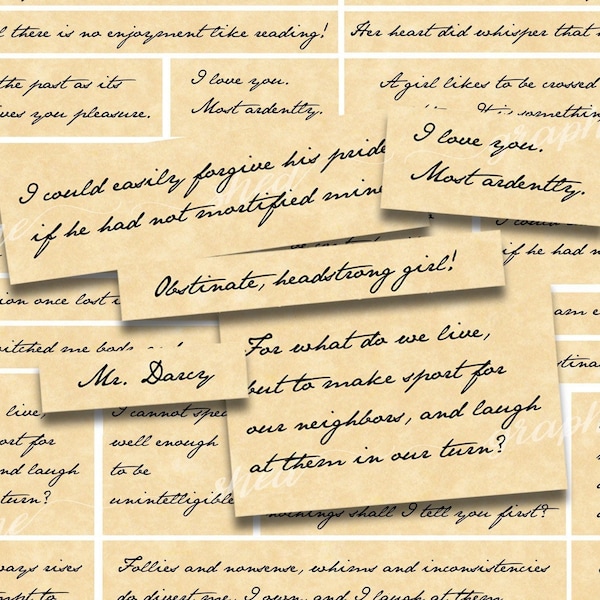 there is no enjoyment like reading!
Her heart did whisper that
the past as its
you pleasure.
I love you.
Most ardently.
A girl likes to be crossed
something
I love you.
Most ardently.
I could easily forgive his pride
if he had not mortified mine
if he had n
Obstinate, headstrong girl!
ion once lost i
am e
itched me bod
stina
Mr. Darcy
For what do we live,
but to make sport for
our neighbors, and laugh
at them in our turn?
live,
ort for
nd laugh
turn?
I cannot spea
well enough
to be
unintelligible
nothings shall I tell you first?
ways rises
mpt to
Follies and nonsense, whims and inconsistencies
do divert me, I own, and I laugh at them